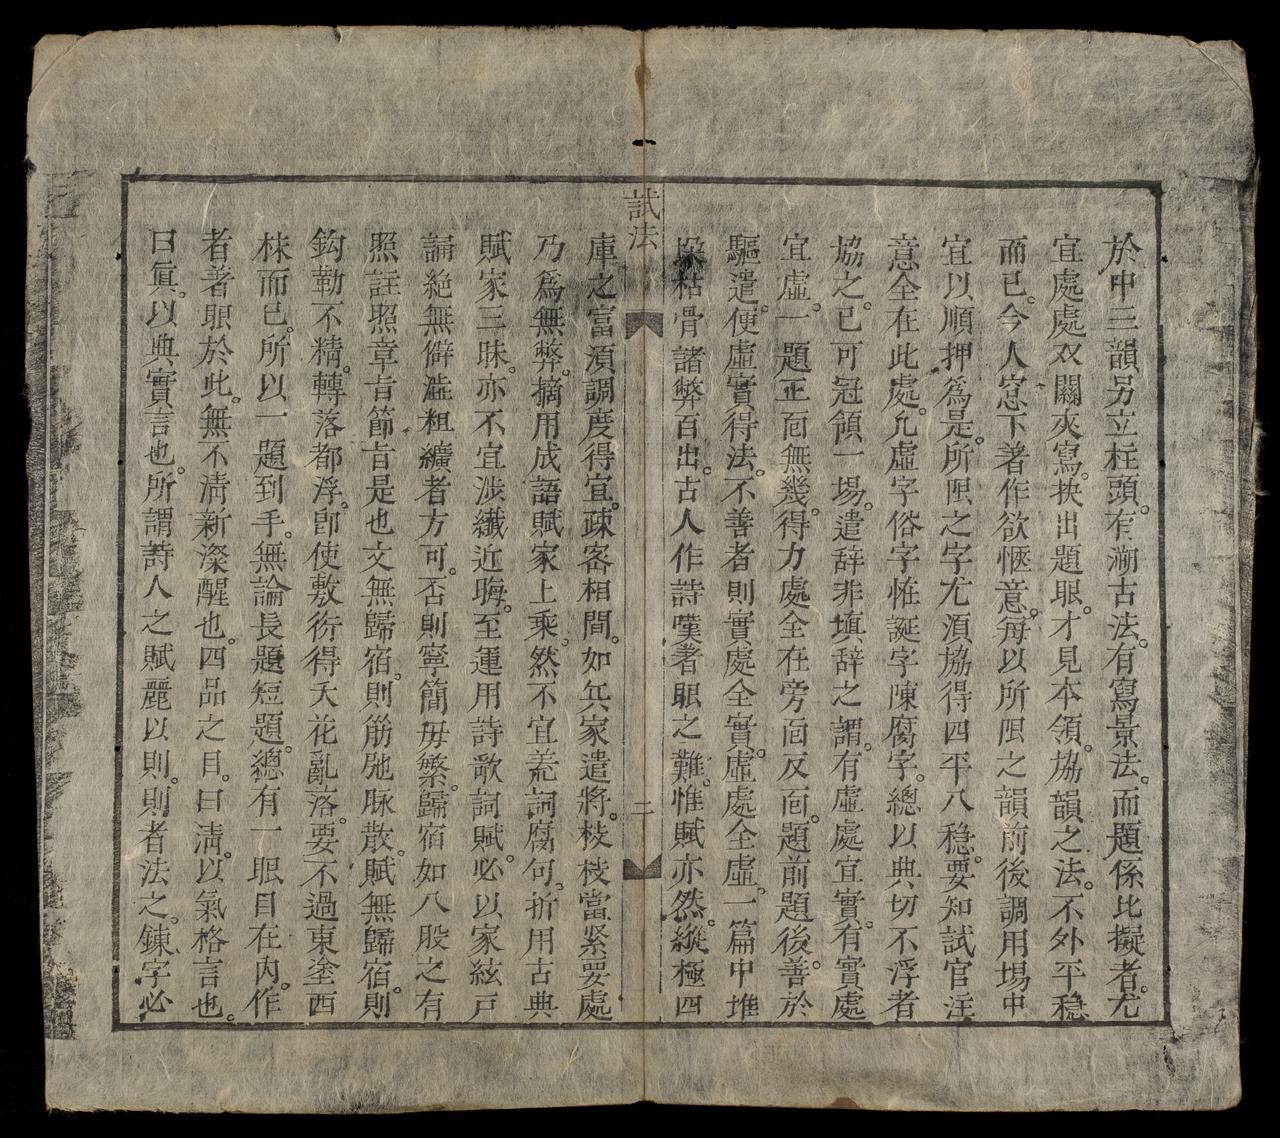 於中三韻另立柱頭。有溯古法。有寫景法。而題係比擬者。尤
宜處處双關夾寫。抉出題眼。才見本領。協韻之法。不外平穩
而已。今人窓下著作欲愜意。每以所限之韻前後調用塲中
宜以順押爲是。所限之字尤湏協得四平八穩。要知試官注
意全在此處。凢虛字俗字恠誕字陳腐字。總以典切不浮者
協之。已可冠領一塲。遣辞非塡辞之謂。有虛處宜實。有實處
宜虛。一題正面無幾。得力處全在旁面反面。題前題後。善於
驅遣。便虛實得法。不善者則實處全實。虛處全虛。一篇中堆
垜枯骨諸弊百出。古人作詩嘆著眼之難。惟賦亦然。縱極四
試法
二
庫之富湏調度得宜。疎密相間。如兵家遣將。枝枝當紧要處
乃爲無弊。摘用成語賦家上乘。然不宜荒詞腐句。折用古典
賦家三昧。亦不宜涉纖近晦。至運用詩歌詞賦。必以家絃戸
誦絶無僻澁粗纊者方可。否則寧簡毋繁。歸宿如八股之有
照註照章旨節旨是也文無歸宿。則筋弛脉散。賦無歸宿。則
鈎勒不精。轉落都浮。卽使敷衍得天花亂落。要不過東塗西
株而已。所以一題到手。無論長題短題。總有一眼目在內。作
者著眼於此。無不淸新濴醒也。四品之目。曰淸。以氣格言也。
曰眞。以典實言也。所謂詩人之賦麗以則。則者法之。鍊字必